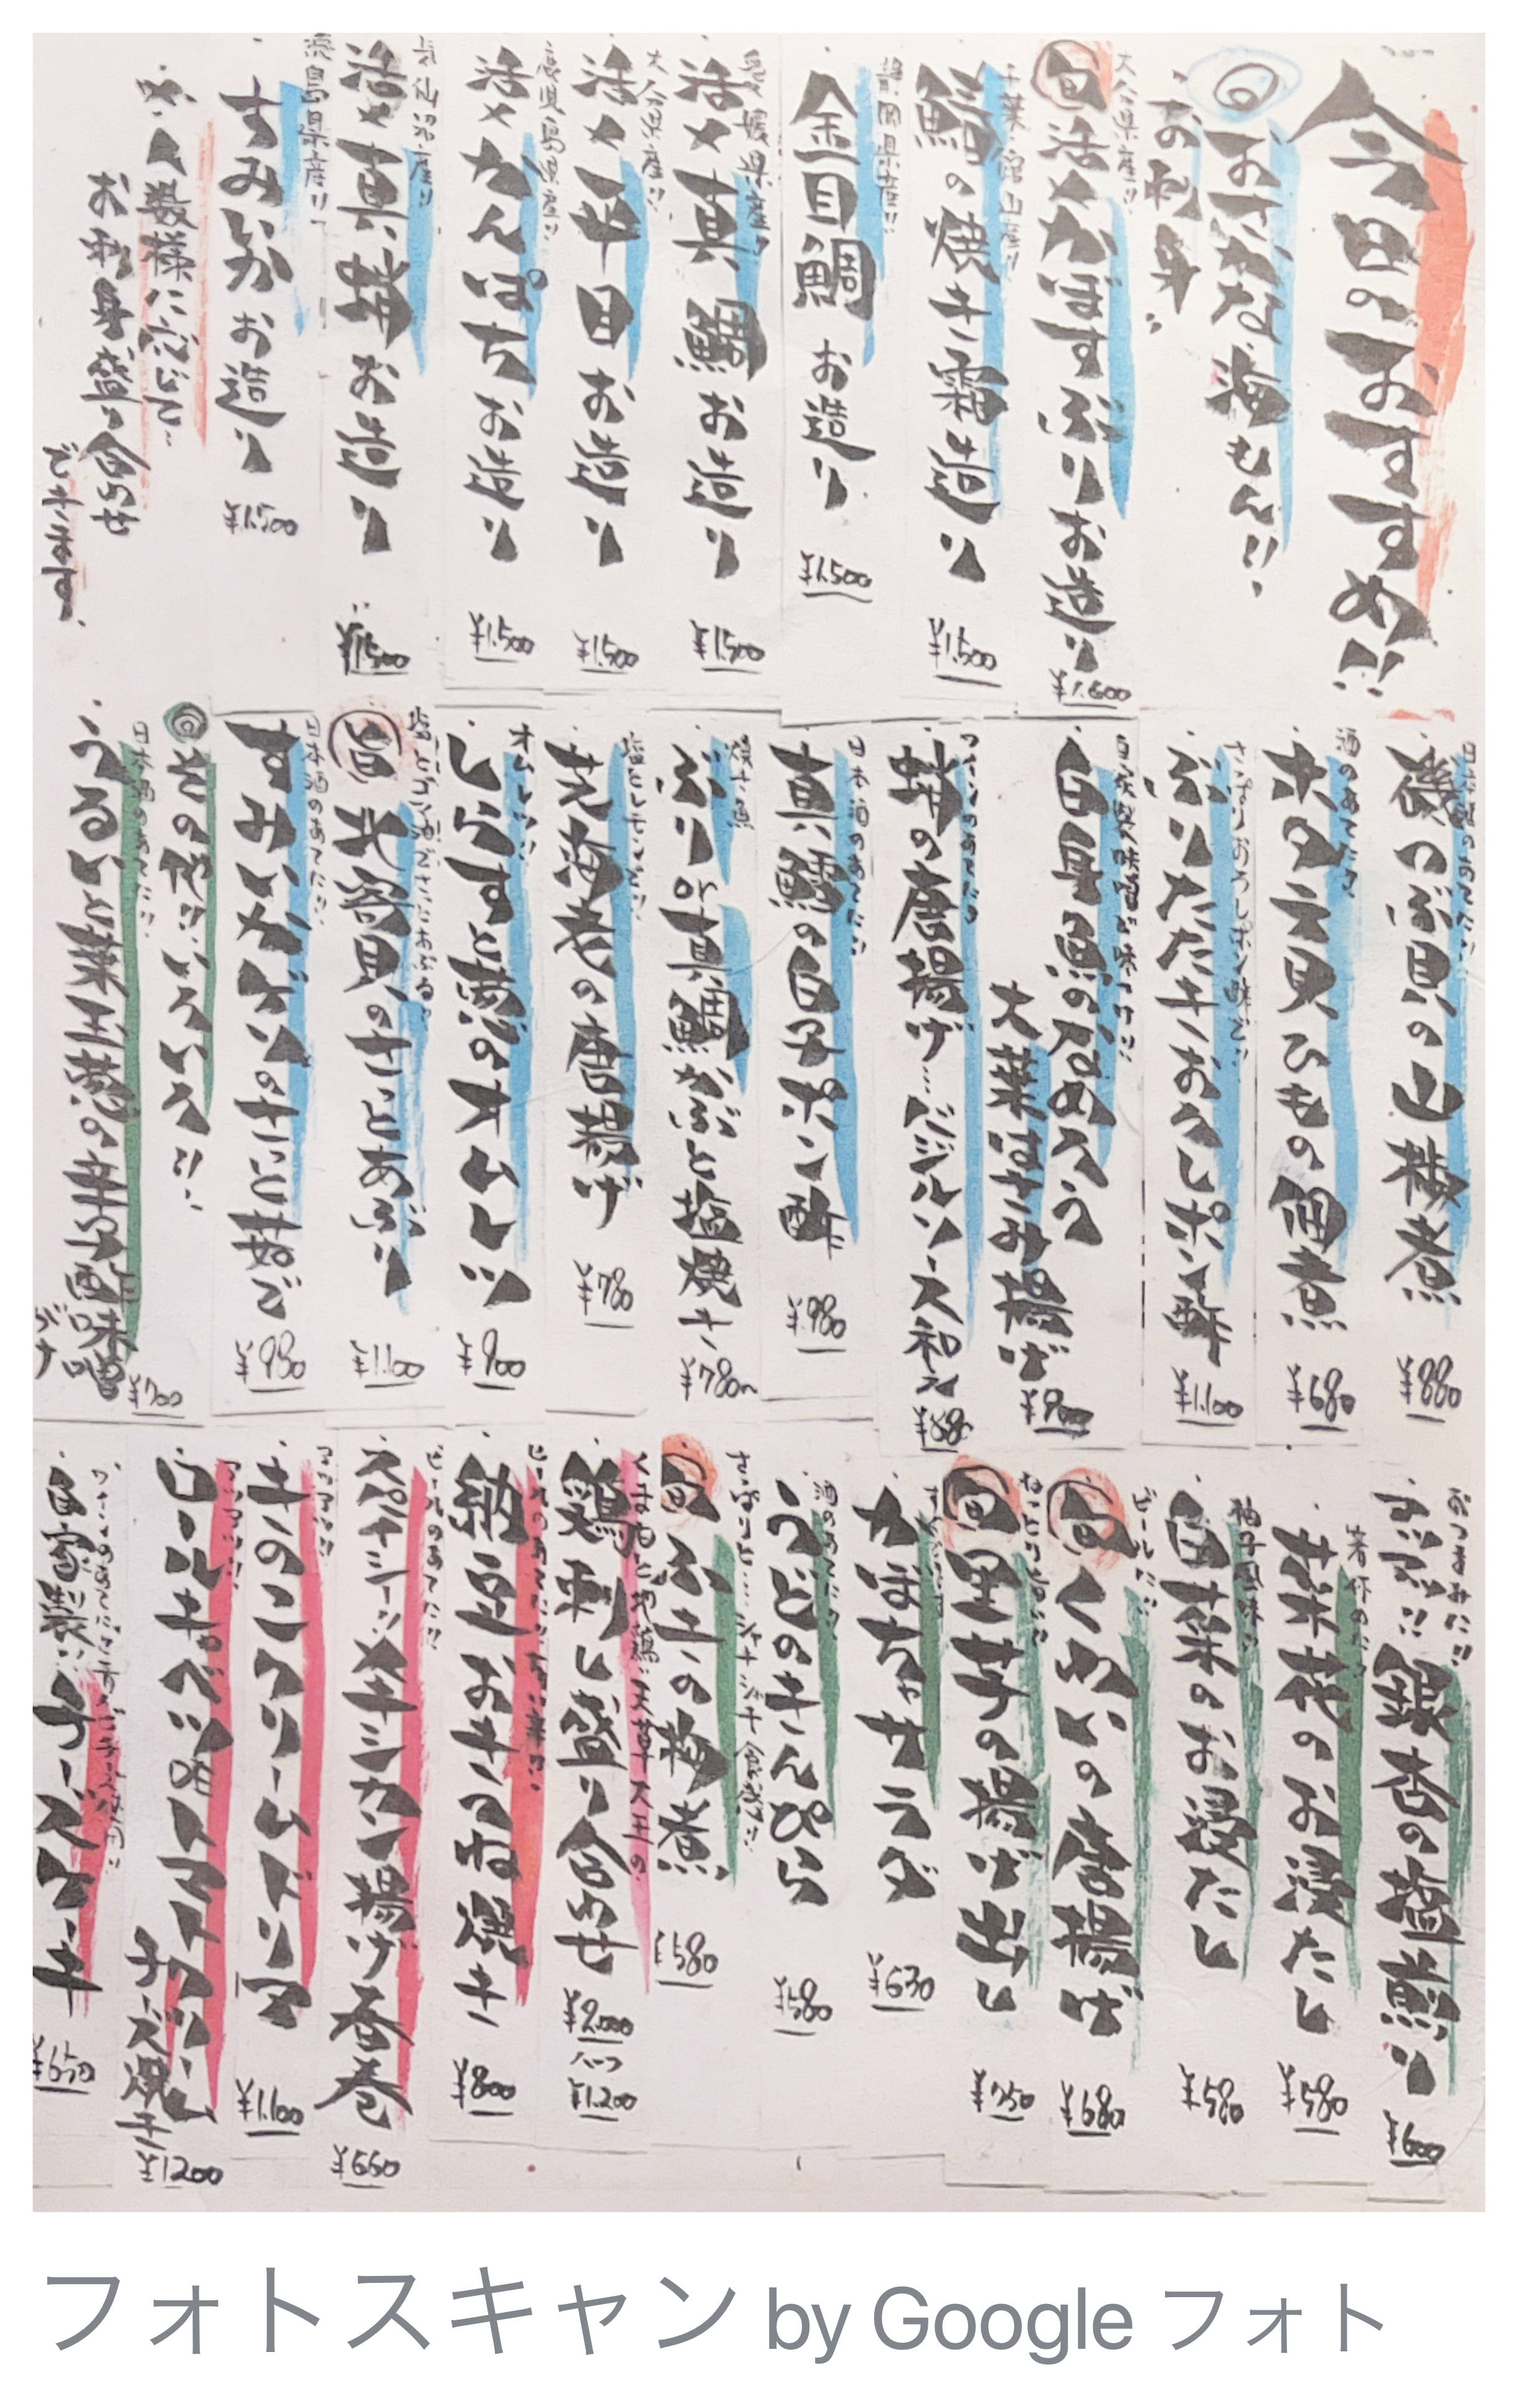 今日のおすすめ!!
◎おさかな 海もん!!
お刺身
大分県産!!
旬 活〆かぼすぶりお造り
¥1,600
千葉 館山産!!
鰆の焼き霜造り
¥1,500
静岡県産!!
金目鯛 お造り
¥1,500
愛媛県産!!
活〆真鯛お造り
¥1,500
大分県産!!
活〆平目お造り
¥1,500
鹿児島県産!!
活〆かんぱちお造り
¥1,500
気仙沼産!!
活〆真蛸お造り
¥1,500
すみいか お造り
¥1,500
人数様に応じて
お刺身盛り合わせ
できます。
日本酒のあてに!!
磯つぶ貝の山椒煮
¥880
酒のあてに
ホタテ貝ひもの佃煮
¥680
さっぱりおろしポン酢で!!
ぶりたたきおろしポン酢
¥1,100
白身魚のなめろう
大葉はさみ揚げ
¥900
蛸の唐揚げ…バジルソース和え
日本酒のあてに!!
真鱈の白子ポン酢
¥980
焼き魚
ぶりor真鯛かぶと塩焼き
¥780~
塩とレモンで!!
芝海老の唐揚げ
¥780
オムレツ!!
しらすと葱のオムレツ
¥900
塩とゴマ油でさっとあぶる
旨 北寄貝のさっとあぶり
¥1,100
日本酒のあてに!!
すみいかげいのさっと茹で
¥980
◎その他!!いろいろ!!
日本酒のあてに!!
うるいと葉玉葱の辛子酢味噌
¥700
おつまみに!!
銀杏の塩煎り
¥600
菜花のお浸たし
¥580
柚子風味!!
白菜のお浸たし
¥580
ビールに!!
旬 くわいの唐揚げ
¥680
旬 里芋の揚げ出し
¥750
かぼちゃサラダ
¥630
酒のあてに
うどのきんぴら
¥580
さっぱりと…シャキシャキ食感!!
旬 ふきの梅煮
¥580
鶏刺し盛り合わせ
¥2,000
ハーフ
¥1,200
納豆おきつね焼き
¥800
ビールのあてに!!
スパイシー!!メキシカン揚げ春巻
¥660
アツアツ!!
きのこクリームドリア
¥1,100
アツアツ!!
ロールキャベツのトマトクリーム
チーズ焼き
¥1200
自家製!!チーズケーキ
¥650
フォトスキャン by Google フォト